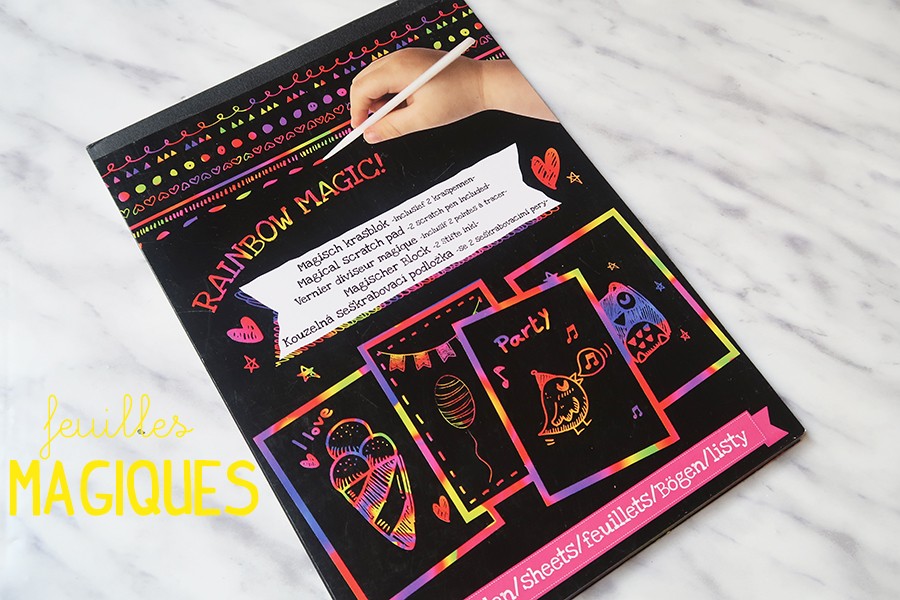 RAINBOW MAGIC!
Magisch krasblok -inclusief 2 kraspennen-
Magical scratch pad -2 scratch pen included-
Vernier diviseur magique -inclusif 2 pointes à tracer-
Magischer Block -2 Stifte inkl-
Kouzelná seškrabovací podložka -se 2 seškrabovacími pery-
Party
I love
/sheets/feuillets/Bögen/listy
feuilles
MAGIQUES